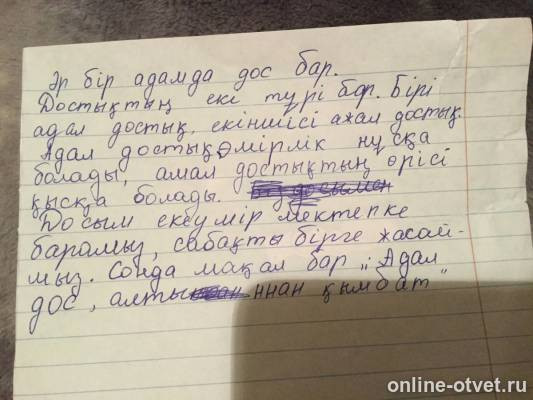 Әр бір адамда дос бар.
Достықтың екі түрі бар. Бірі
адал достық, екіншісі амал достық.
Адал достық өмірлік нұсқа
болады, амал достықтың өрісі
қысқа болады.
Досым екеумір мектепке
барамыз, сабақты бірге жасай-
мыз. Сонда мақал бар „Адал
дос, алтыннан қымбат"
online-otvet.ru